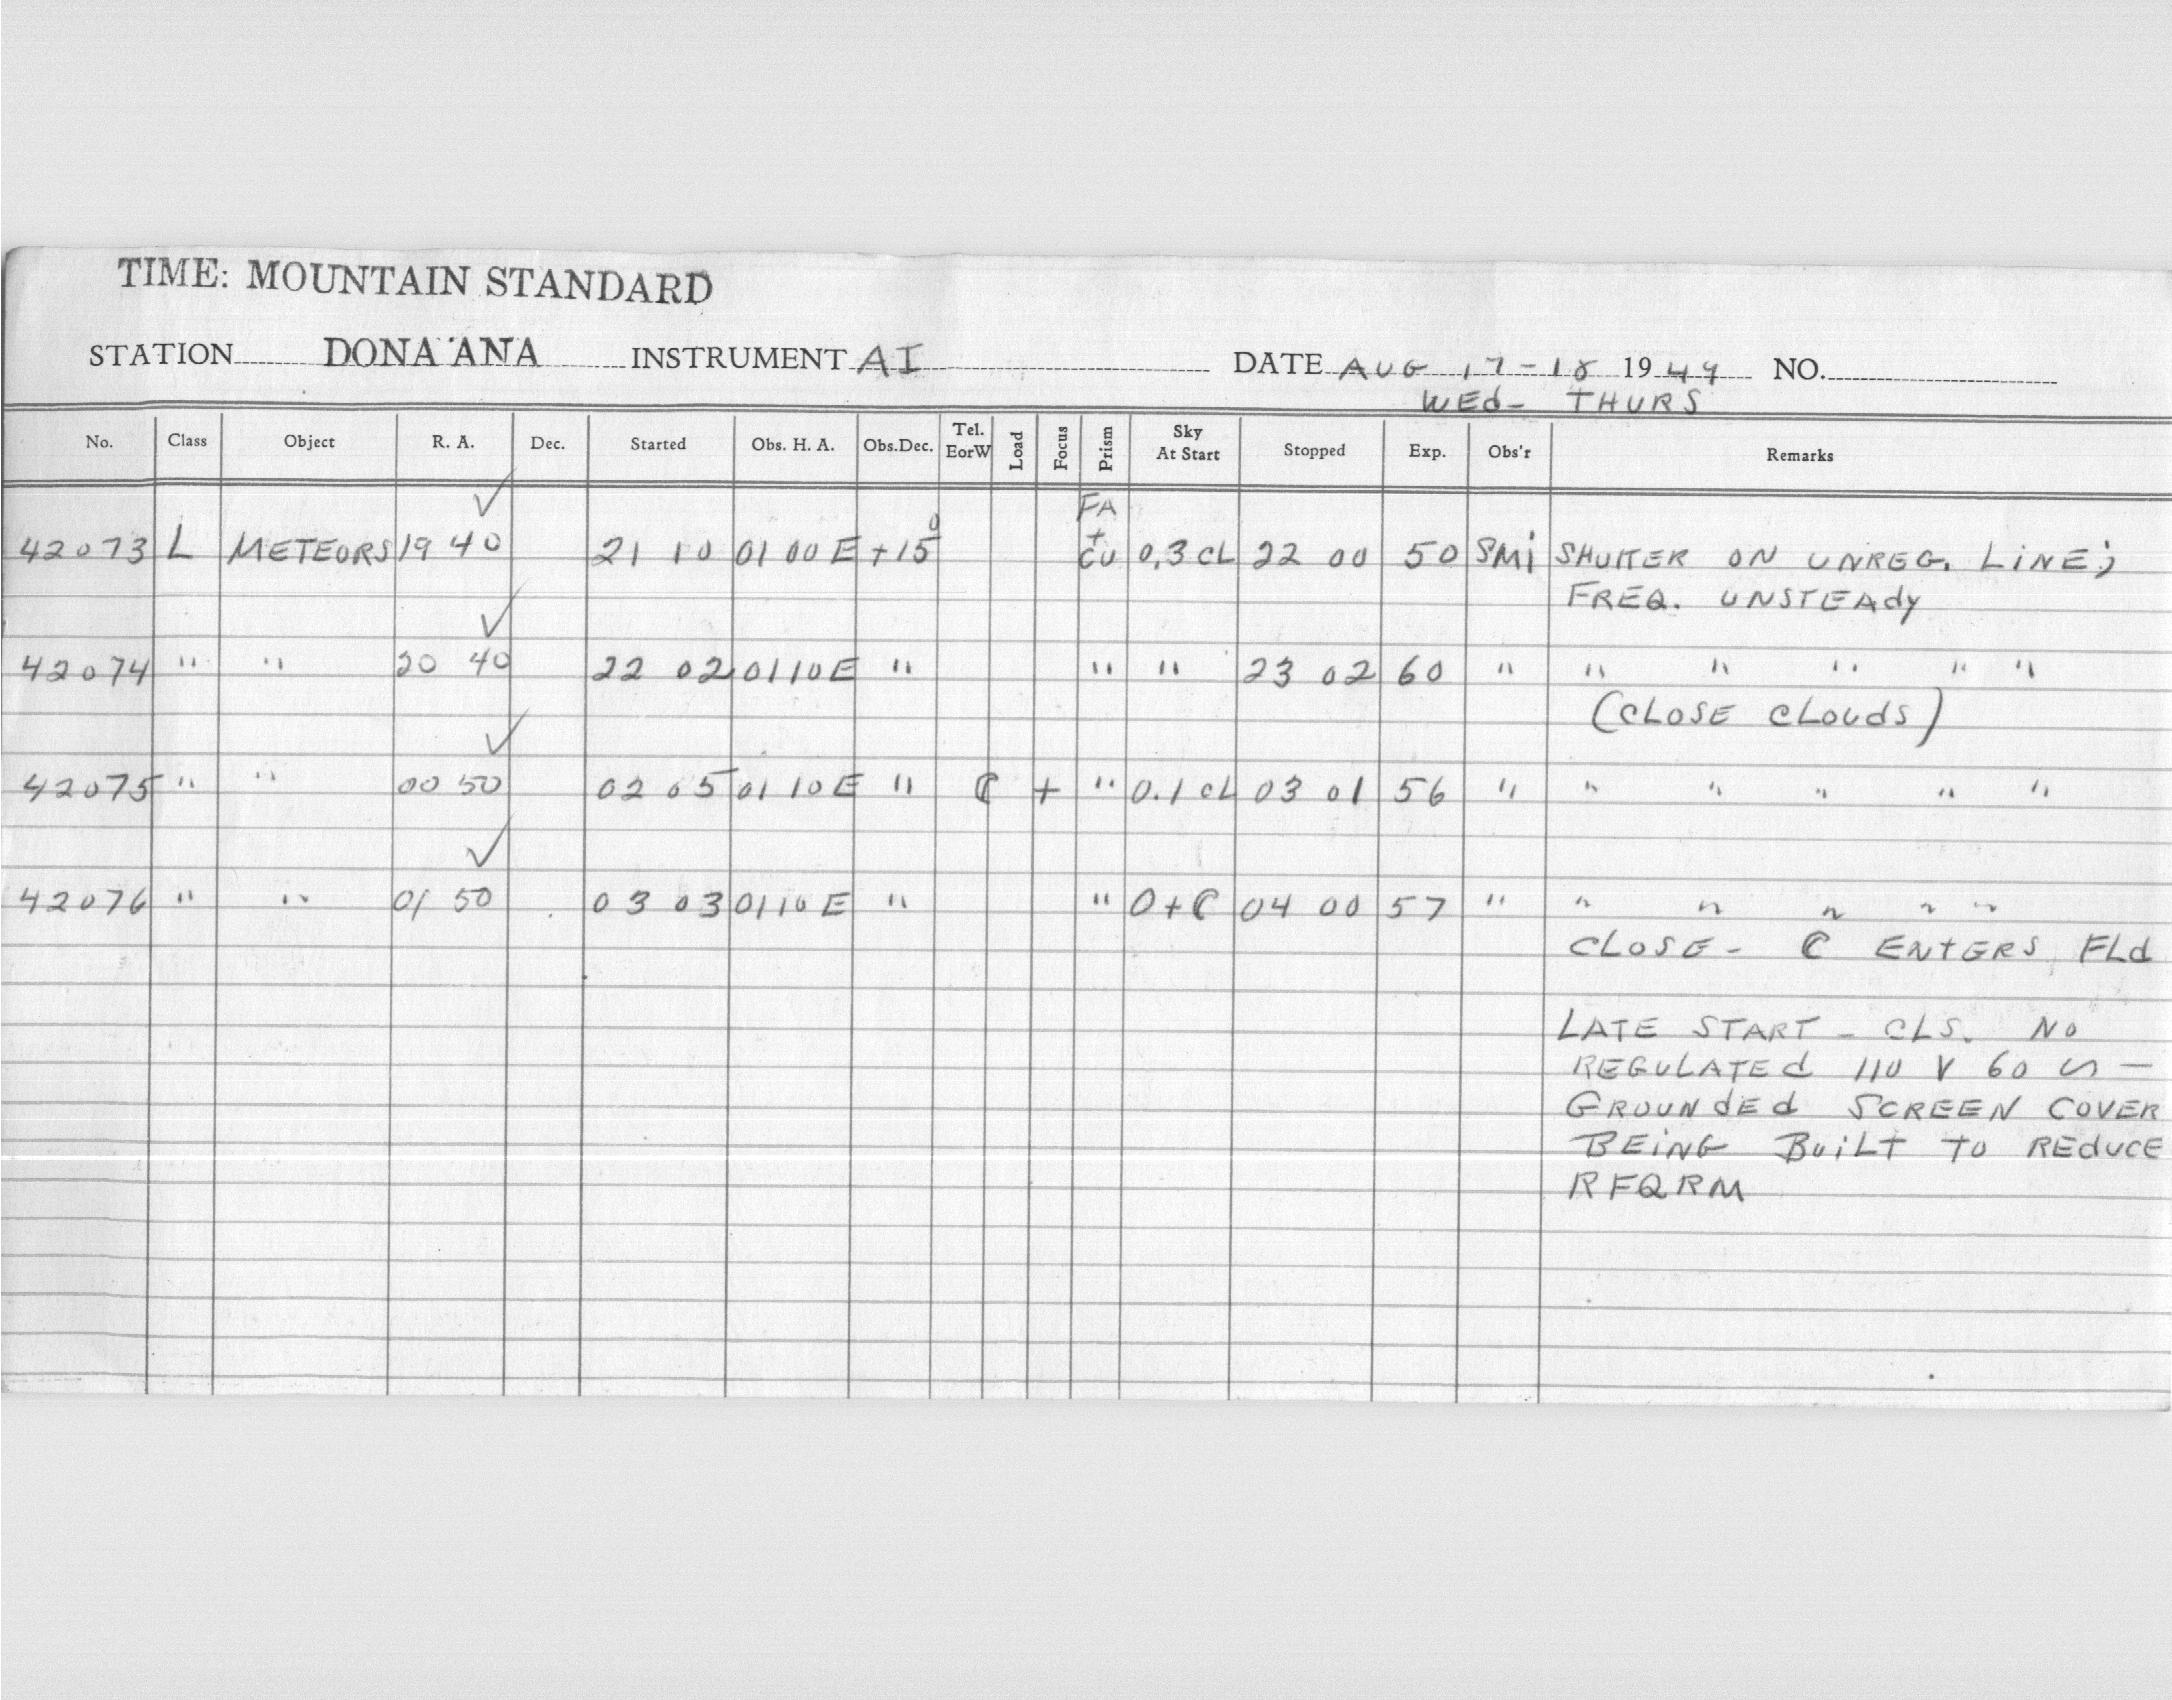 TIME: MOUNTAIN STANDARD
STATION DONA ANA INSTRUMENT AI DATE AUG 17-18 1949 NO.
WEd- THURS
No. Class Object R. A. Dec. Started Obs. H. A. Obs.Dec. Tel. EorW Load Focus Prism Sky At Start Stopped Exp. Obs'r Remarks
42073 L METEORS 19 40 ✓ 21 10 01 00 E +15° FA + CU 0.3 CL 22 00 50 SMi SHUTTER ON UNREG. LINE;
FREQ. UNSTEAdy
42074 " " 20 40 ✓ 22 02 01 10 E " " " 23 02 60 " " " " " "
(CLOSE CLOUdS)
42075 " " 00 50 ✓ 02 05 01 10 E " ☾ + " 0.1 CL 03 01 56 " " " " " "
42076 " " 01 50 ✓ 03 03 01 10 E " " 0+☾ 04 00 57 " " " " " "
CLOSE - ☾ ENTERS FLd
LATE START - CLS. NO
REGULATEd 110 V 60 ~ —
GROUNdEd SCREEN COVER
BEiNG BUiLT TO REdUCE
RFQRM